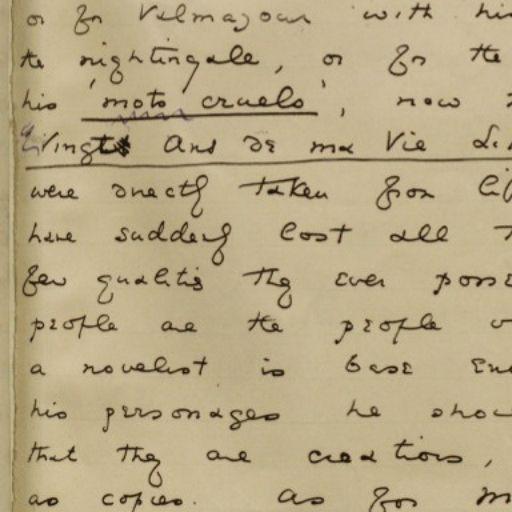 or for Valmajour with his
the nightingale, or for the
his 'mots cruels', now
Vingt Ans de ma Vie
were directly taken from
have suddenly lost all
few qualities they ever
people are the people
a novelist is base
his personages he
that they are creations,
as copies. As for M